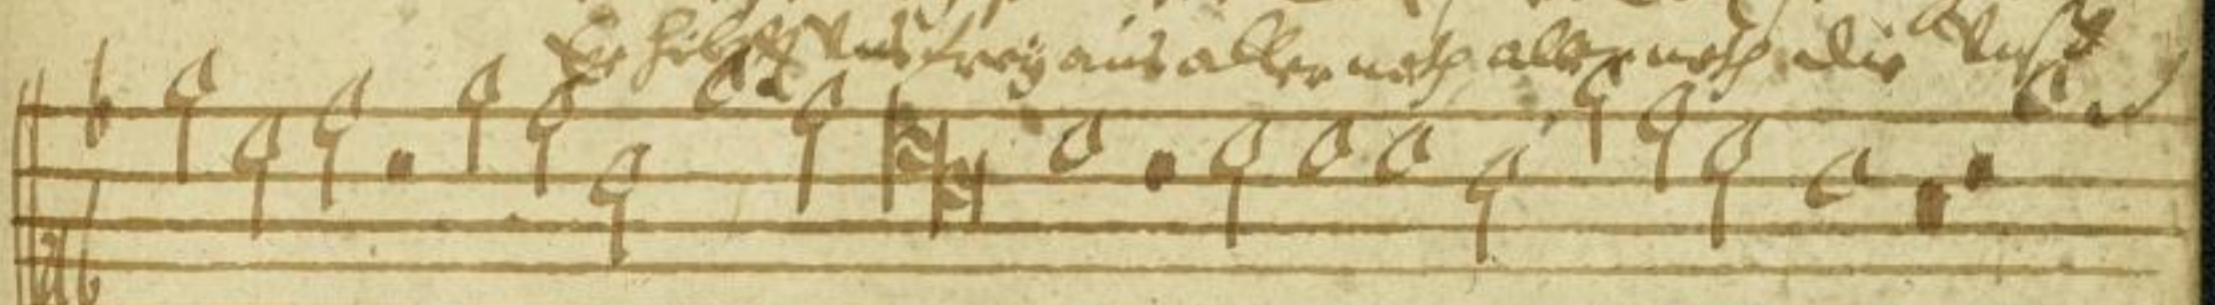 Er hilfft uns frey aus aller noth aller noth die uns